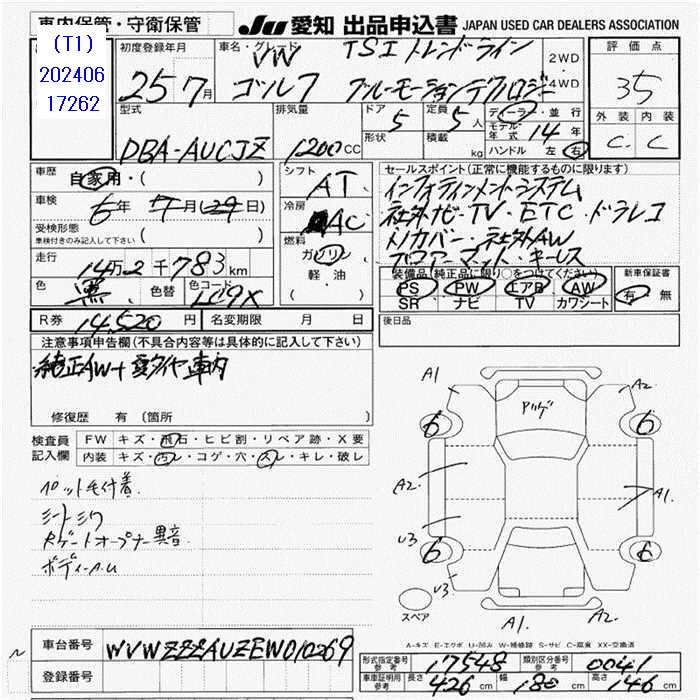 車内保管・守衛保管
JU 愛知 出品申込書 JAPAN USED CAR DEALERS ASSOCIATION
(T1)
202406
17262
初度登録年月 25 7月
車名・グレード VW TSI トレンドライン
ゴルフ ブルーモーションテクノロジー
2WD
4WD
評価点 35
外装 内装
C. C
型式 DBA-AUCJZ
排気量 1200CC
ドア 5
形状
定員 5人
積載 kg
ディーラー・並行
モデル年式 14年
ハンドル 左 右
車歴 自家用・( )
車検 6年 7月(29日)
受検形態
車検付きのみ記入して下さい ( )
走行 14万2千783km
色 黒 色替 色コード LC9X
シフト AT
冷房 AC
燃料 ガソリン
軽油
( )
セールスポイント(正常に機能するものに限ります)
インフォテインメントシステム
社外ナビ・TV・ETC・ドラレコ
社外AW
フロアーマット・キーレス
装備品(純正品に限り○をつけてください)
PS PW エアB AW
SR ナビ TV カワシート
新車保証書
有・無
R券 14,520円 名変期限 月 日
後日品
注意事項申告欄(不具合内容等は具体的に記入して下さい)
純正AW+夏タイヤ車内
修復歴 有 〔箇所 〕
検査員記入欄
FW キズ・飛石・ヒビ割・リペア跡・X要
内装 キズ・汚レ・コゲ・穴・スレ・キレ・破レ
ペット毛付着.
シートシワ
Rゲートオープナー異音.
ボディーA.U
A1 A2
Aツゲ
6 6
A2. A1
U3 6 6
U3.
スペア
A1. A2
A-キズ E-エクボ U-凹み W-補修跡 S-サビ C-腐食 XX-交換済
車台番号 WVWZZZAUZEW010269
登録番号
形式指定番号 参考 17548 類別区分番号 参考 0041
車車証明書 参考 長さ 426cm 幅 180cm 高さ 146cm